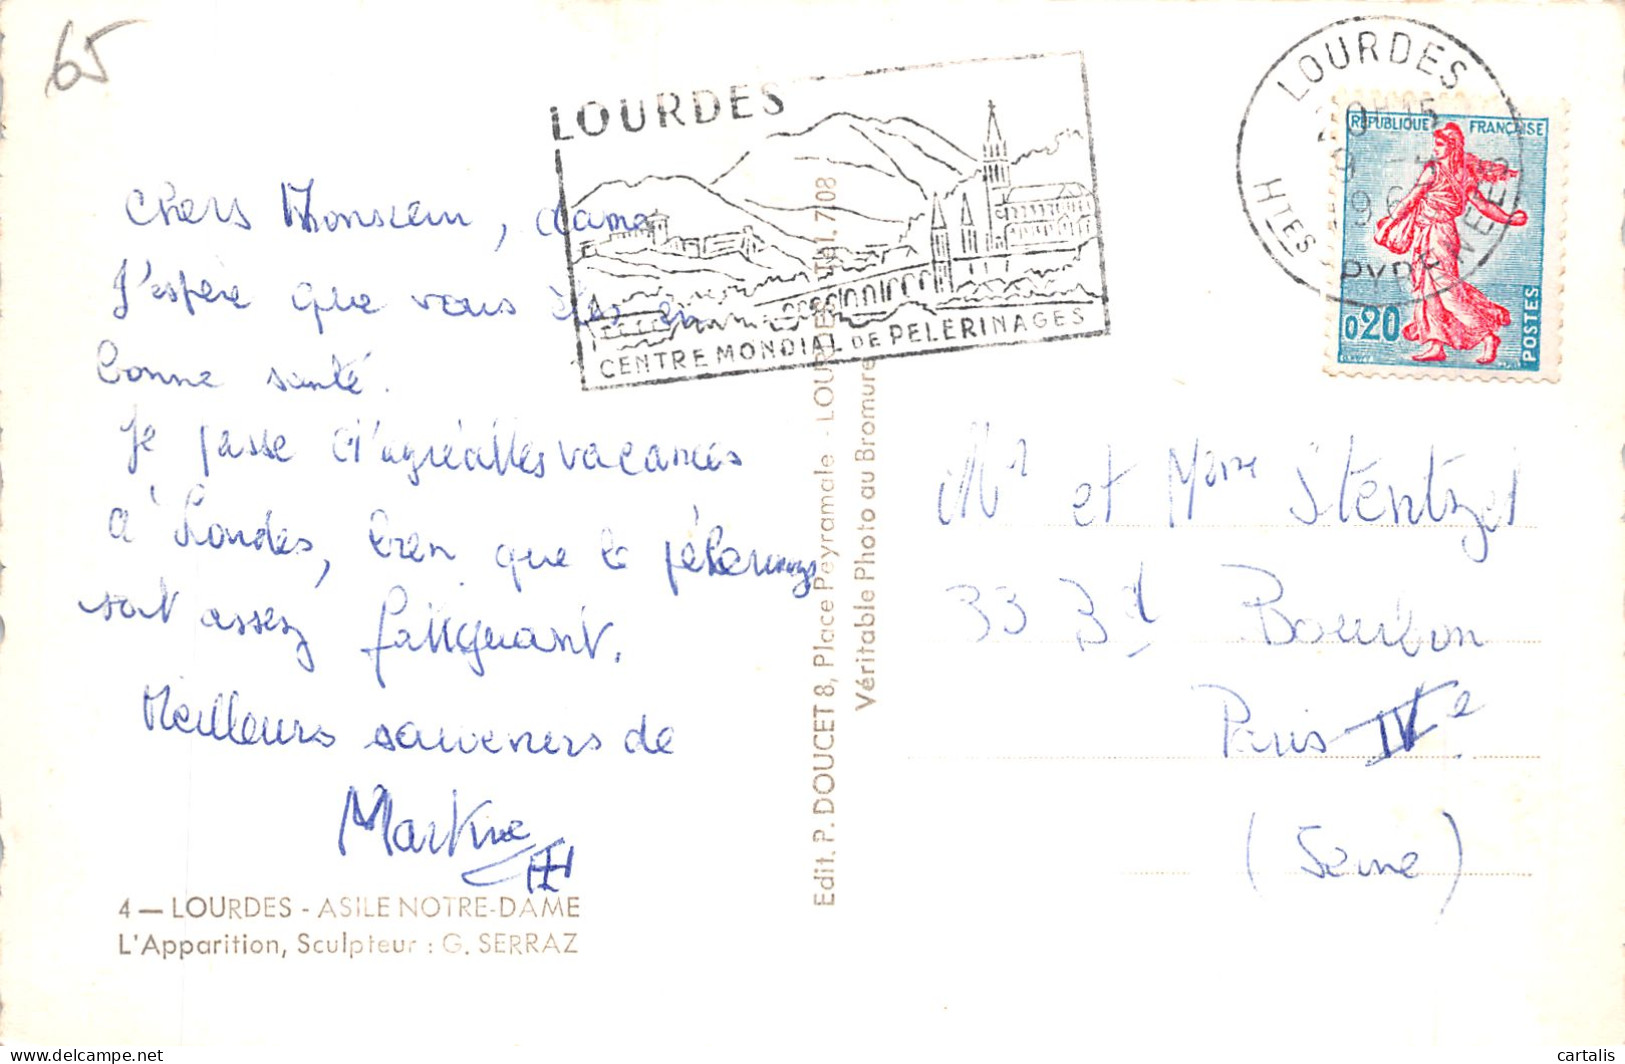 65
LOURDES
CENTRE MONDIAL DE PELERINAGES
LOURDES
20H15
Htes PYRENEES
REPUBLIQUE FRANÇAISE
0,20
POSTES
Chers Monsieur, dame
J'espère que vous êtes en
bonne santé.
Je passe d'agréables vacances
à Lourdes, bien que le pélerinage
soit assez fatiguant.
Meilleurs souvenirs de
Martine
4 — LOURDES - ASILE NOTRE-DAME
L'Apparition, Sculpteur : G. SERRAZ
Edit. P. DOUCET 8, Place Peyramale - LOURDES Tél. 7.08
Véritable Photo au Bromure
Mr et Mme Stentzel
33 Bd Bourbon
Paris IVe
(Seine)
cartalis
delcampe.net